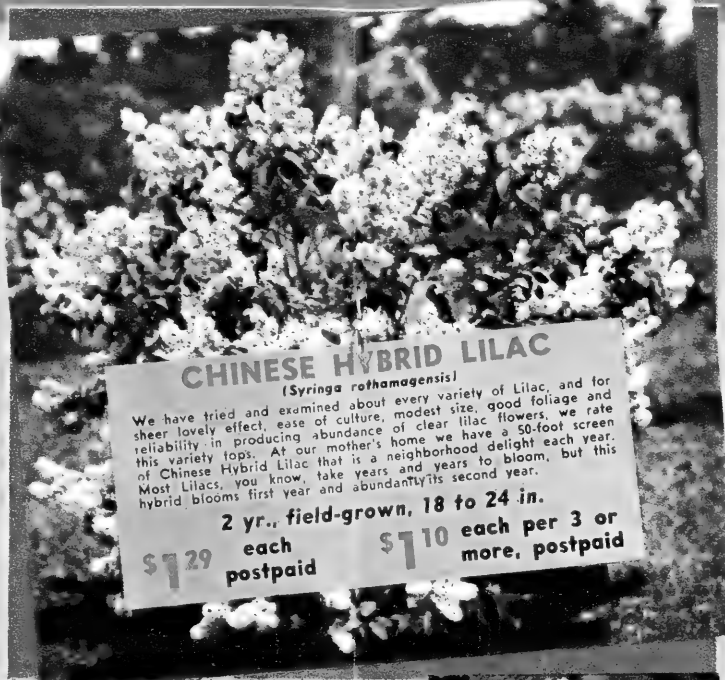 CHINESE HYBRID LILAC
(Syringa rothamagensis)
We have tried and examined about every variety of Lilac, and for
sheer lovely effect, ease of culture, modest size, good foliage and
reliability in producing abundance of clear lilac flowers, we rate
this variety tops. At our mother's home we have a 50-foot screen
of Chinese Hybrid Lilac that is a neighborhood delight each year.
Most Lilacs, you know, take years and years to bloom, but this
hybrid blooms first year and abundantly its second year.
2 yr., field-grown, 18 to 24 in.
$1 29 each postpaid
$1 10 each per 3 or more, postpaid